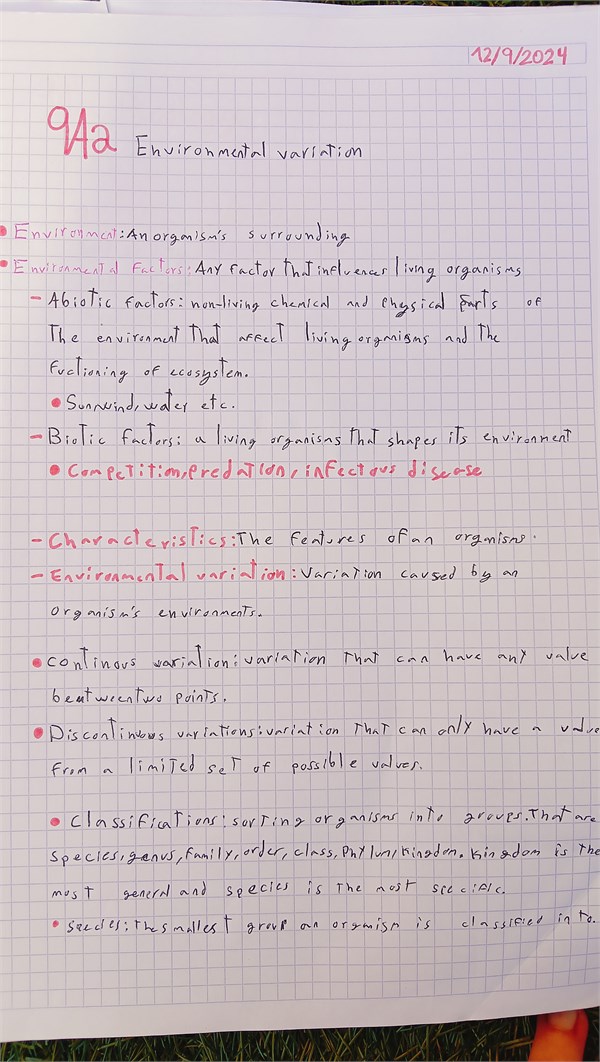 12/9/2024
9Aa Environmental variation
• Environment: An organism's surrounding
• Environmental Factors: Any factor that influences living organisms
- Abiotic factors: non-living chemical and physical parts of
The environment that affect living orgmisms and the
fuctioning of ecosystem.
• Sun, wind, water etc.
- Biotic factors: a living organisms that shapes its environment
• Competition, predation, infectous disease
- Characteristics: The features of an organisms.
- Environmental variation: Variation caused by an
organism's environments.
• continous variation: variation that can have any value
beatween two points.
• Discontinuous variations: variation that can only have a value
from a limited set of possible values.
• Classifications: sorting organisms into groups. That are
species, genus, family, order, class, Phylun, Kingdom. Kingdom is the
most general and species is the most specific.
• Species: the smallest group an orgmism is classified into.